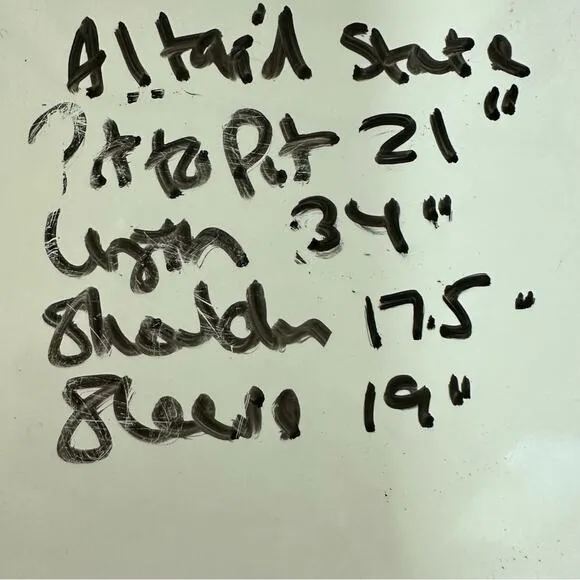 Altar'd State
Pit to Pit 21"
Length 34"
Shoulder 17.5"
Sleeve 19"